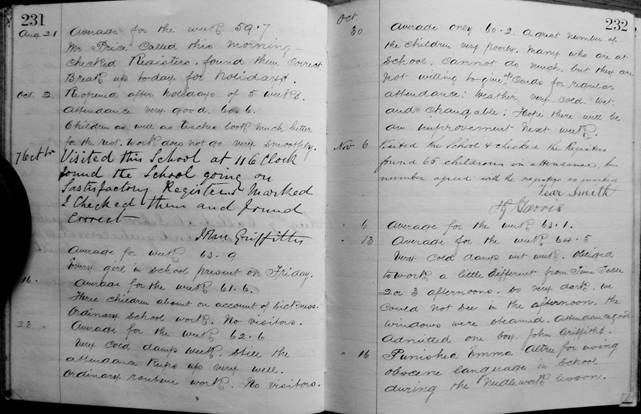 231
Aug 21 Average for the week 59.7
Mr Price Called this morning -
Checked Registers. found them Correct
Break up today for holidays.
Oct. 2 Reopened after holidays of 5 weeks.
attendance very good. 60.6.
Children as well as teachers look much better
for the rest. Work does not go very smoothly.
7 Octbr Visited this School at 11 6 Clock
found the School going on
Satisfactory Registers Marked
I Checked them and found
Correct
Griffiths
Average for week 63.9
Every one in school present on Friday.
16. Average for the week 61.6.
Three children absent on account of Sickness.
Ordinary School work. No visitors.
23 Average for the week 62.6
Very cold damp week. Still the
attendance keeps up very well.
Ordinary routine work. No visitors.
232
Oct 30 Average only 60.2. a great number of
the children very poorly. many who are at
School. Cannot do much. but they are
just willing to give Cards for regular
attendance. Weather very cold. wet.
and changable. Hope there will be
an improvement next week.
Nov 6 Visited the School & checked the Registers
found 65 childrens in attendance, the
number agreed with the registers as marked
Smith
Harris
" 6 Average for the week 63.1.
" 13 Average for the week 60.5
Very cold damp wet week. Obliged
to work a little different from Time Table
2 or 3 afternoons. So very dark. we
Could not see in the afternoon. the
windows were steamed. Attendance good
Admitted one boy. John Griffiths.
" 16 Punished Emma for using
obscene language in School
during the Needlework lesson.